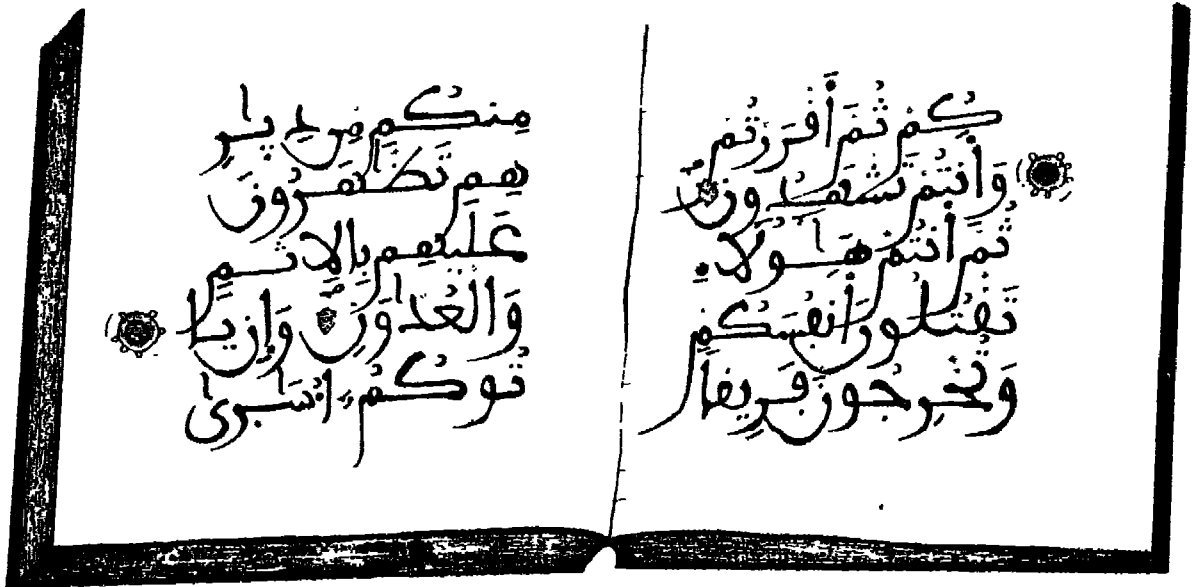 كُمْ ثُمَّ أَقْرَرْتُمْ
وَأَنتُمْ تَشْهَدُونَ
ثُمَّ أَنتُمْ هَٰؤُلَاءِ
تَقْتُلُونَ أَنفُسَكُمْ
وَتُخْرِجُونَ فَرِيقًا
مِنكُم مِّن دِيَٰرِ
هِمْ تَظَّٰهَرُونَ
عَلَيْهِم بِالِاثْمِ
وَالْعُدْوَٰنِ وَإِن يَا
تُوكُمُ أُسَٰرَىٰ